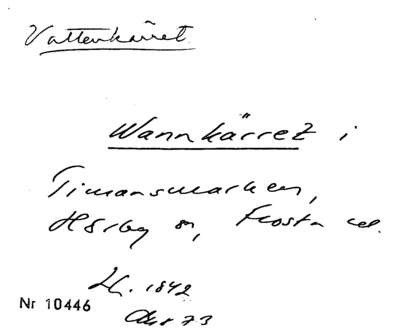 Vattenkärret
Wannkärret i
Timansmarken,
Hörby sn, Frosta
1842
Nr 10446
73